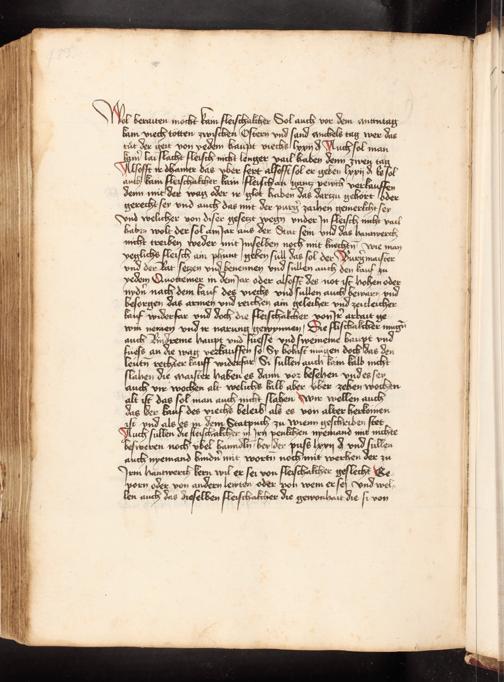 Wol beraiten mocht kain fleischakher Sol auch vor dem antlastag
kain viech totten zwischen Ostern und sand michels tag wer das
tät der geit von yedem haupt viechs lxxij d Auch sol man
kain lai slacht fleisch nicht lenger vail haben denn zwen tag
Alsofft er daruber das yber fert alsofft sol er geben lxxij d Es sol
auch kain fleischakher kain fleisch an ganz pewtt verkauffen
denn mit der wag oder er hab das darzu gehort oder
gerecht sey und auch das mit der purger zaihen gemerkht sey
und welicher von diser gesetzt wegen under In fleisch nicht vail
haben wolt der sol ain Jar aus der Stat sein und das hanwerch
nicht treiben weder mit Inselden noch mit kuechen Wie man
yeglichs fleisch am phunt geben sull das sol der Burgermaister
und der Rat seczen und benennen und sullen auch den kauf zu
yedem Quotemer in dem Jar oder alsofft des not ist hohen oder
nydern nach dem kauf des viechs und sullen auch bewarn und
besorgen das armen und reichen ain geleicher und zeitleicher
kauf widerfar und doch die fleischakher von Ir arbait ge
win nemen und ir narung gewynnen Die fleischakher mugen
auch Rindreine haupt und fuesse und sweineine haupt und
fuess an die wag verkauffen so sy hohist mugen doch das den
leuten rechter kauff widerfar Si sullen auch kain kalb nicht
slahen die maister haben es dann vor besehen und es sey
auch vir wochen alt welichs kalb aber uber zehen wochen
alt ist das sol man auch nicht slahen Wir wellen auch
das der kauf des viechs beleib als es von alter herkomen
ist und als es in dem Statpuch zu wienn geschriben stet
Auch sullen die fleischakher in Irn penkchen nyemand mit nichte
besweren noch ubel hanndln bey der puss lxxij d und sullen
auch nyemand hindern mit worten noch mit werken der zu
Irm hanwerch kern wil er sei von fleischakher geslecht Ge
porn oder von andern lewten oder von wem er sey Und wel
len auch das dieselben fleischakher die gewonhait die si von